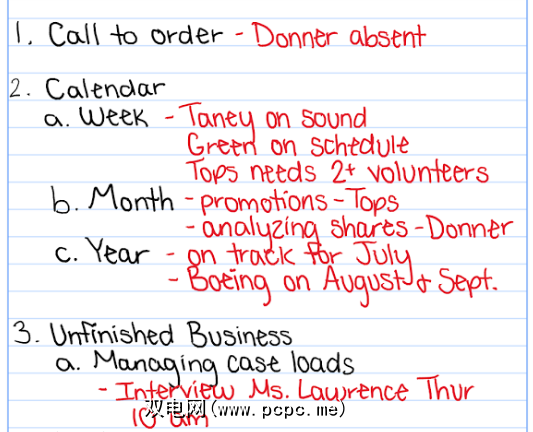 1. Call to order - Donner absent
2. Calendar
a. Week - Taney on sound
Green on schedule
Tops needs 2+ volunteers
b. Month - promotions - Tops
- analyzing shares - Donner
c. Year - on track for July
- Boeing on August & Sept.
3. Unfinished Business
a. Managing case loads
- Interview Ms. Lawrence Thur
10 am
双电网(www.pcpc.me)